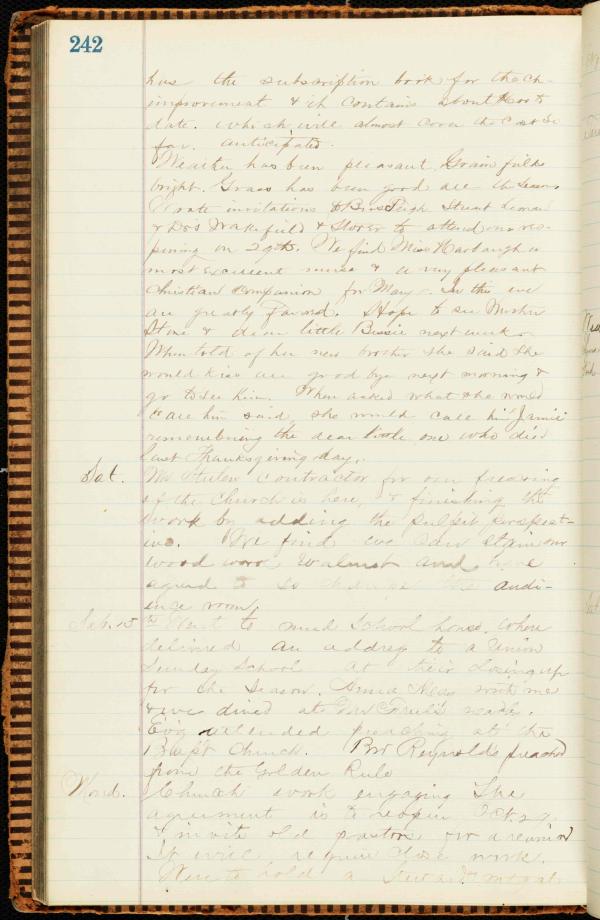 242
has the subscription book for the Ch-
improvement & it contains about to
date. which will almost cover the cost so
far anticipated.
Weather has been pleasant. Grain fields
bright. Grass has been good all the season
Wrote invitations to Bros Leigh Stuart Leman
& Drs Wakefield & Stover to attend our reo-
pening on 29th. We find Miss Harbaugh a
most excellent nurse & a very pleasant
Christian companion for Mary. In this we
are greatly favord. Hope to see Mother
Stone & dear little Bessie next week.
When told of her new brother she said she
would kiss all good bye next morning &
go to see him. When asked what she would
call him said, she would call him Jamie
remembering the dear little one who died
last Thanksgiving day.
Sat. Mr contractor for our frescoing
of the Church is here, & finishing the
work by adding the pulpit perspect-
ive. We find we can stain our
wood work Walnut and have
agreed to so change the audi-
ence room.
Sab. 15 Went to mud School house. Where
delivered an address to a Union
Sunday School at their closing up
for the season. Anna went with me
& we dined at near.
Ev'g attended preaching at the
Bapt Church. Bro Reynolds preached
from the Golden Rule
Mond. Church work engaging. The
agreement is to reopen Oct 29
& invite old pastors for a reunion
It will require close work.
Were to hold a